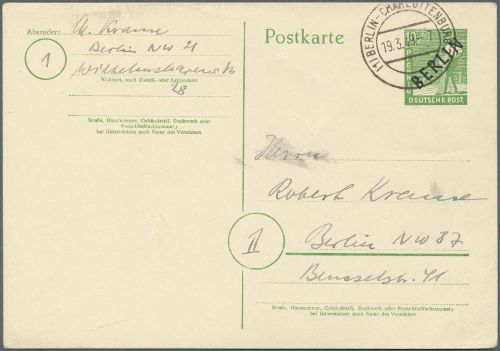 Absender:
M. Krause
Berlin NW 21
Wilhelmshavener Str.
28
1
Wohnort, auch Zustell- oder Leitpostamt
Straße, Hausnummer, Gebäudeteil, Stockwerk oder
Postschließfachnummer;
bei Untermietern auch Name des Vermieters
Postkarte
(1) BERLIN-CHARLOTTENBURG
19.3.49
BERLIN
DEUTSCHE POST
Herrn
Robert Krause
II
Berlin NW 87
Beusselstr. 41
Straße, Hausnummer, Gebäudeteil, Stockwerk oder Postschließfachnummer;
bei Untermietern auch Name des Vermieters